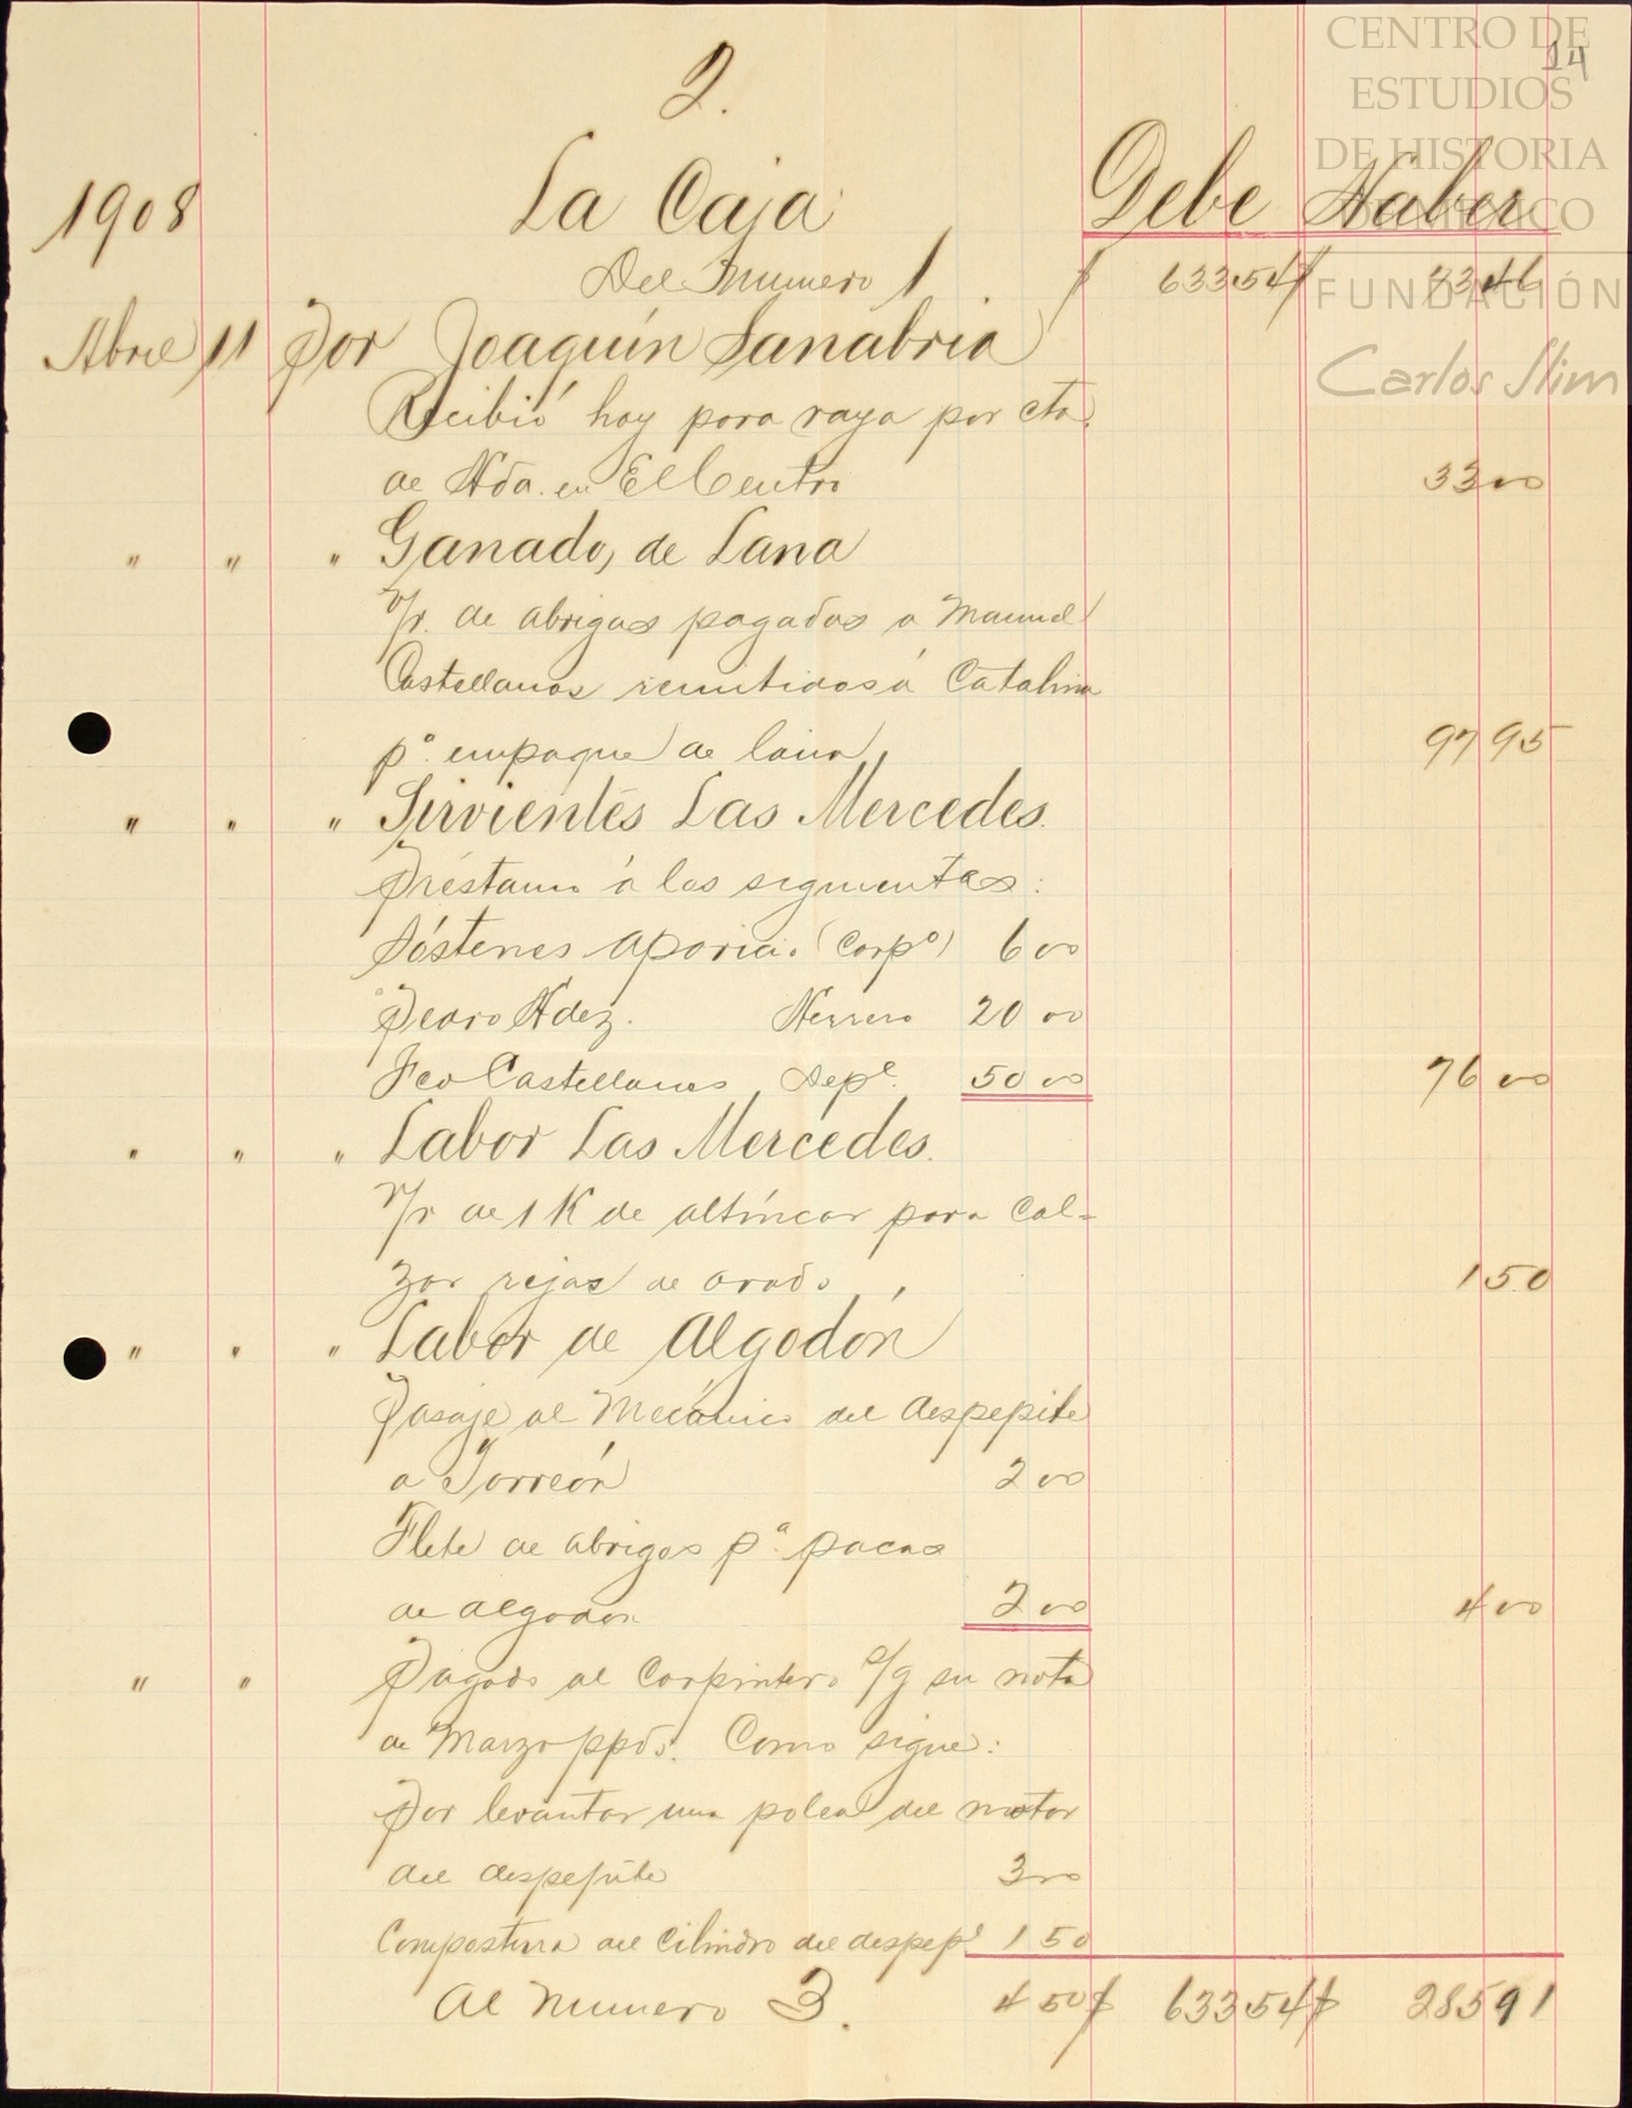 14
2.
1908 La Caja Debe Haber
Del Numero 1 $ 633 54 $ 73 46
Abril 11 Por Joaquín Sanabria
Recibió hoy para raya por cta.
de Hda. en El Centro 33 00
" " " Ganado, de Lana
V/r. de abrigos pagados a Manuel
Castellanos remitidos á Catalina
pa. empaque de lana, 97 95
" " " Sirvientes Las Mercedes.
Préstamo á los siguientes:
Sóstenes Aparici. (Carpo) 6 00
Pedro Hdez. Herrero 20 00
Fco Castellanos Depe. 50 00 76 00
" " " Labor Las Mercedes.
V/r de 1 K de altíncar para cal-
zar rejas de arado, 1 50
" " " Labor de Algodón
Pasaje al Mecánico del despepite
a Torreón 2 00
Flete de abrigos pa. pacas
de algodon 2 00 4 00
" " Pagado al Carpintero s/g su nota
de Marzo ppdo. Como sigue:
Por levantar una polea del motor
del despepite 3 00
Compostura del Cilindro del despepe 1 50
Al Numero 3. 4 50 $ 633 54 $ 285 91
CENTRO DE
ESTUDIOS
DE HISTORIA
DE MÉXICO
FUNDACIÓN
Carlos Slim